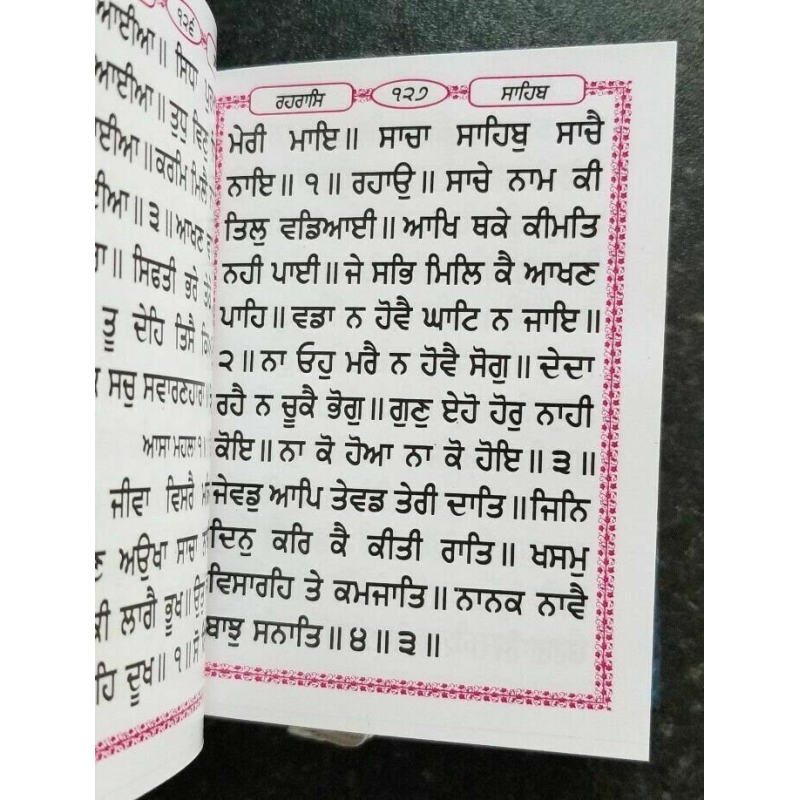 ੧੨੬
ਆਈਆ॥ ਸਿਧਾ
ਆਈਆ॥ ਤੁਧੁ ਵਿਣੁ
ਆਈਆ॥ ਕਰਮਿ ਮਿਲੈ
ਈਆ॥੩॥ ਆਖਣ
ਰਾ॥ ਸਿਫਤੀ ਭਰੇ
ਤੂ ਦੇਹਿ ਤਿਸੈ
ਸਚੁ ਸਵਾਰਣਹਾਰਾ
ਆਸਾ ਮਹਲਾ ੧॥
ਜੀਵਾ ਵਿਸਰੈ
ਅਉਖਾ ਸਾਚਾ
ਕੀ ਲਾਗੈ ਭੂਖ॥
ਹਿ ਦੂਖ॥੧॥
ਰਹਰਾਸਿ ੧੨੭ ਸਾਹਿਬ
ਮੇਰੀ ਮਾਇ॥ ਸਾਚਾ ਸਾਹਿਬੁ ਸਾਚੈ
ਨਾਇ॥ ੧॥ ਰਹਾਉ॥ ਸਾਚੇ ਨਾਮ ਕੀ
ਤਿਲੁ ਵਡਿਆਈ॥ ਆਖਿ ਥਕੇ ਕੀਮਤਿ
ਨਹੀ ਪਾਈ॥ ਜੇ ਸਭਿ ਮਿਲਿ ਕੈ ਆਖਣ
ਪਾਹਿ॥ ਵਡਾ ਨ ਹੋਵੈ ਘਾਟਿ ਨ ਜਾਇ॥
੨॥ ਨਾ ਓਹੁ ਮਰੈ ਨ ਹੋਵੈ ਸੋਗੁ॥ ਦੇਦਾ
ਰਹੈ ਨ ਚੂਕੈ ਭੋਗੁ॥ ਗੁਣੁ ਏਹੋ ਹੋਰੁ ਨਾਹੀ
ਕੋਇ॥ ਨਾ ਕੋ ਹੋਆ ਨਾ ਕੋ ਹੋਇ॥੩॥
ਜੇਵਡੁ ਆਪਿ ਤੇਵਡ ਤੇਰੀ ਦਾਤਿ॥ ਜਿਨਿ
ਦਿਨੁ ਕਰਿ ਕੈ ਕੀਤੀ ਰਾਤਿ॥ ਖਸਮੁ
ਵਿਸਾਰਹਿ ਤੇ ਕਮਜਾਤਿ॥ ਨਾਨਕ ਨਾਵੈ
ਬਾਝੁ ਸਨਾਤਿ॥੪॥੩॥